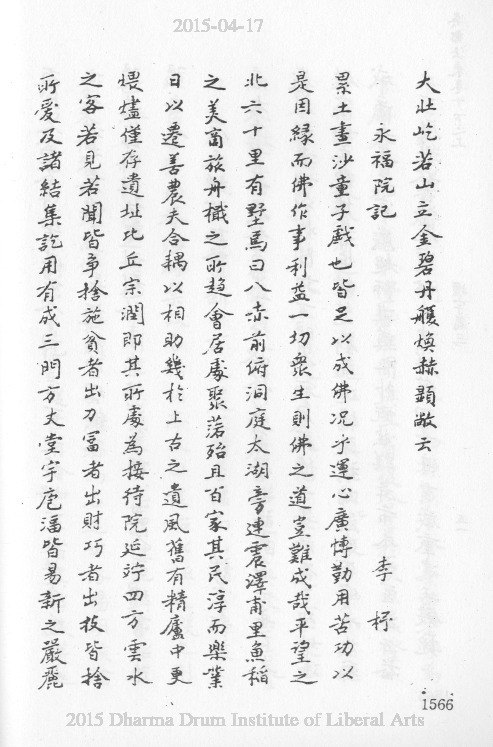 2015-04-17
大壯屹若山立金碧丹雘煥赫顯敞云
永福院記
李桴
累土畫沙童子戲也皆足以成佛況乎運心廣博勤用苦功以
是因緣而佛作事利益一切衆生則佛之道豈難成哉平望之
北六十里有墅焉曰八赤前俯洞庭太湖旁連震澤甫里魚稻
之美商旅舟檝之所趍會居處聚落殆且百家其民淳而樂業
日以遷善農夫合耦以相助幾於上古之遺風舊有精廬中更
煨燼僅存遺址比丘宗潤即其所處為接待院延竚四方雲水
之客若見若聞皆爭捨施貧者出力冨者出財巧者出技皆捨
所愛及諸結集訖用有成三門方丈堂宇庖湢皆易新之嚴麗
1566
2015 Dharma Drum Institute of Liberal Arts